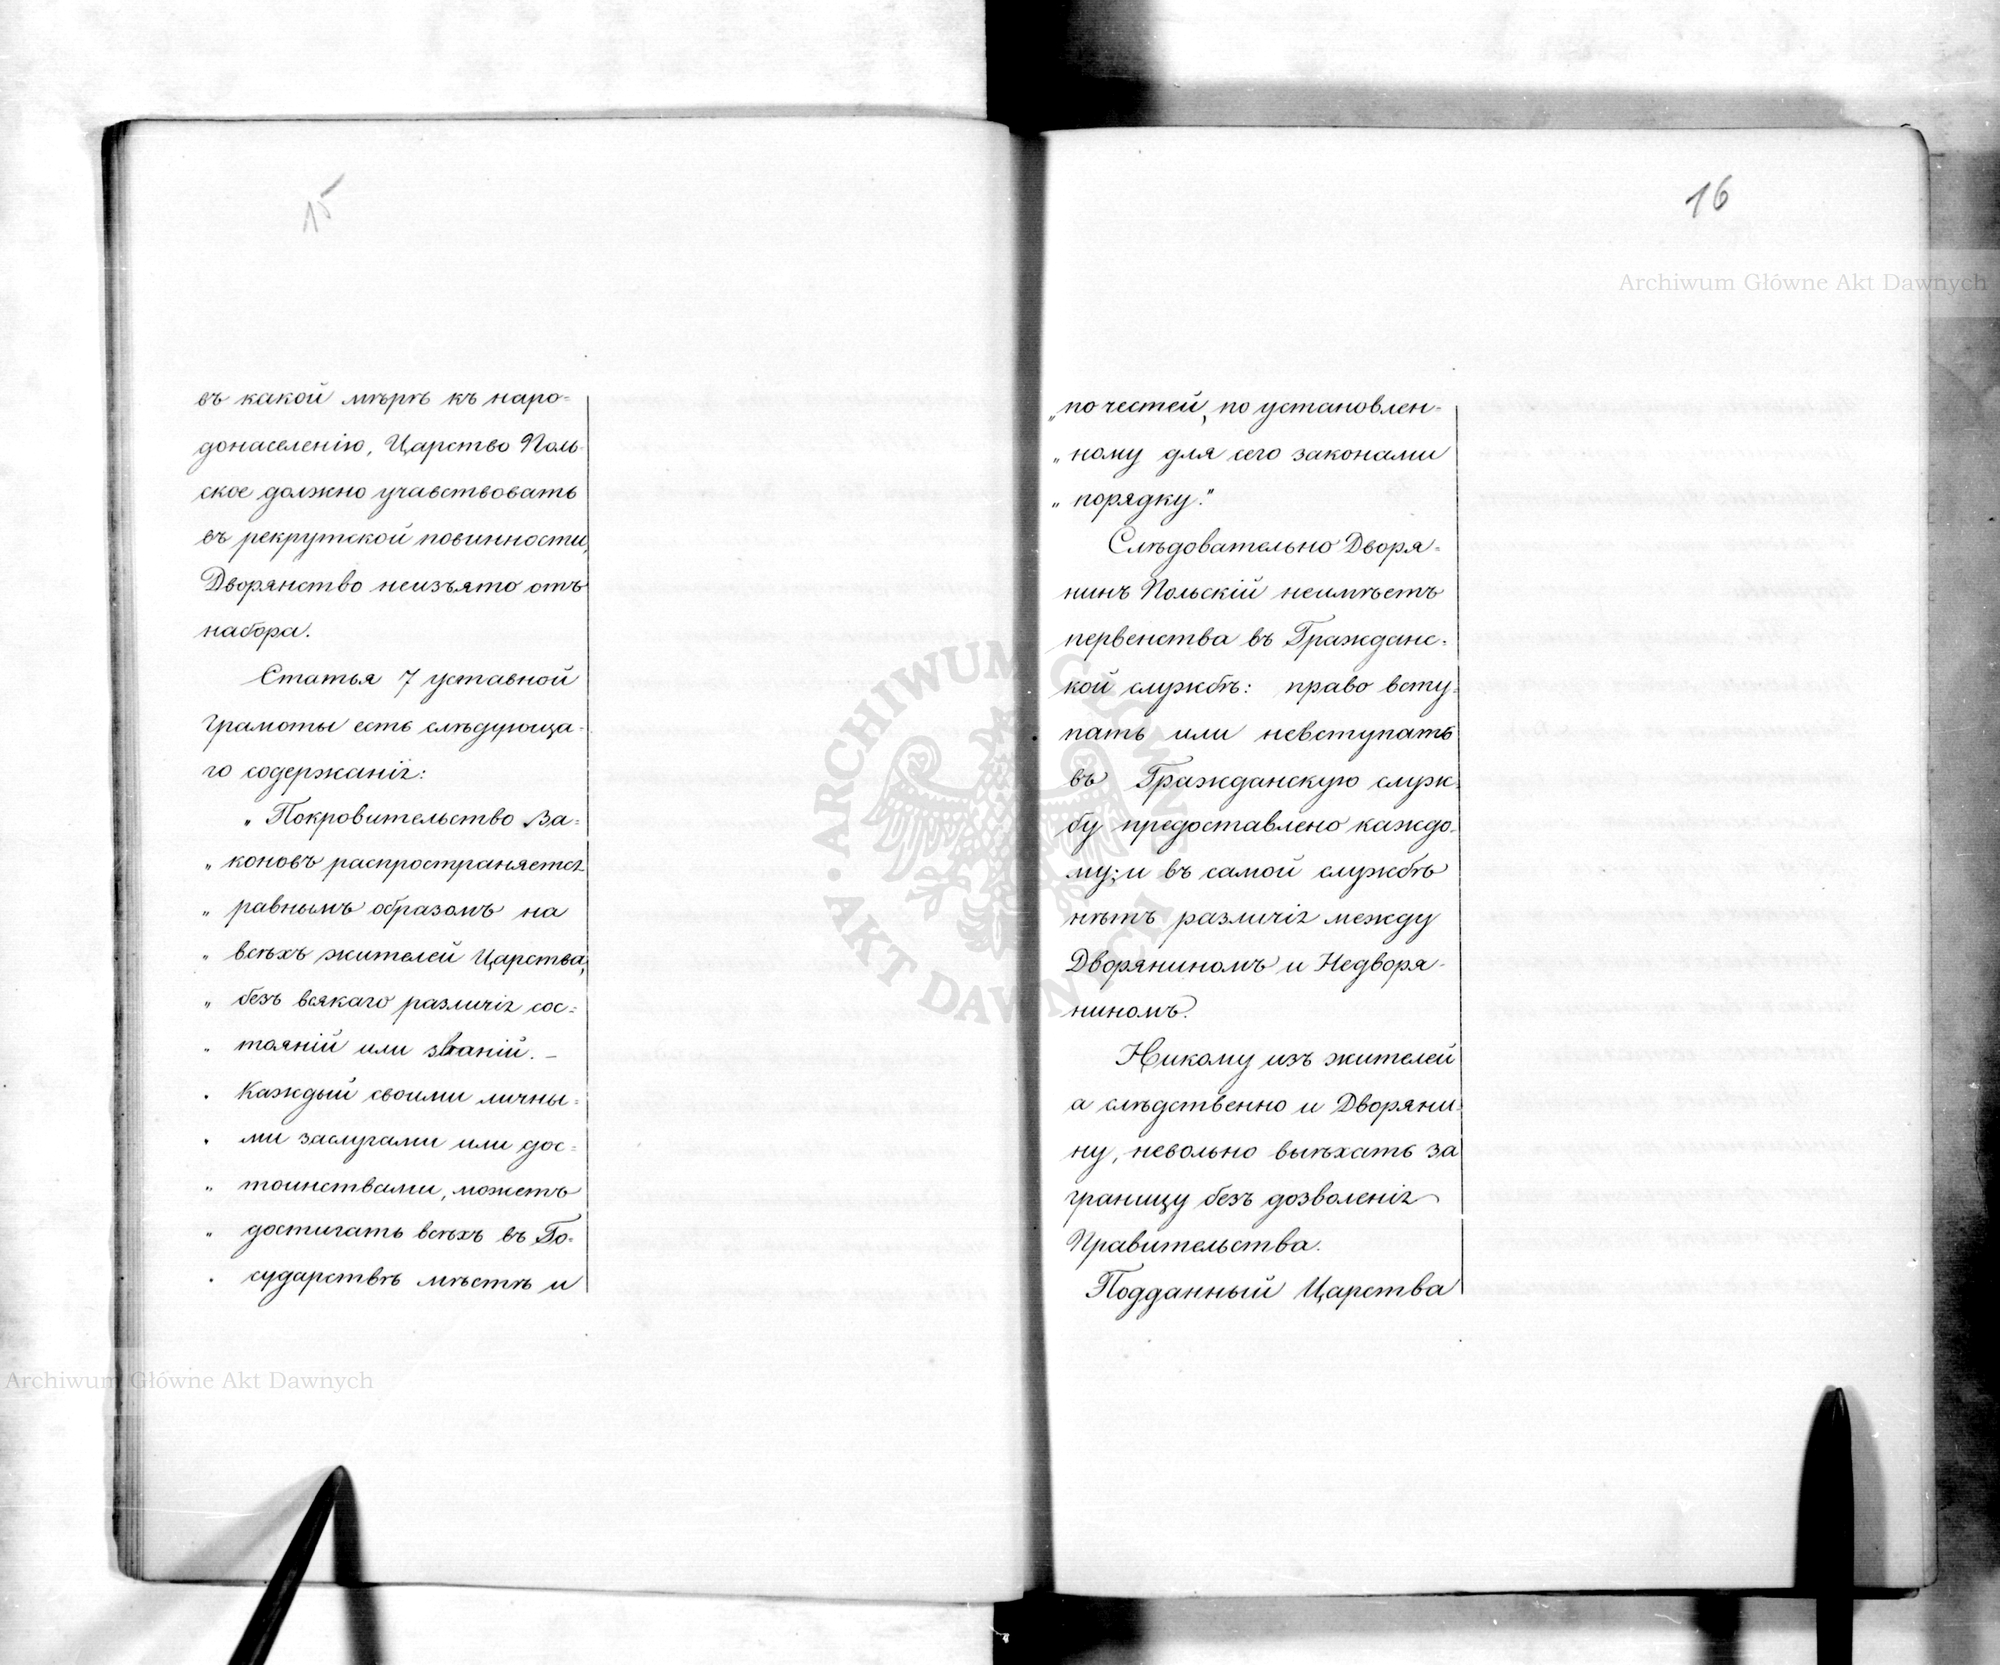 15
въ какой мѣрѣ къ наро=
донаселенію, Царство Поль-
ское должно учавствовать
въ рекрутской повинности,
Дворянство неизъято отъ
набора.
Статья 7 уставной
грамоты есть слѣдующа-
го содержанія:
„ Покровительство За=
„ коновъ распространяется
„ равнымъ образомъ на
„ всѣхъ жителей Царства,
„ безъ всякаго различія сос=
„ тояній или званій. —
„ Каждый своими личны=
„ ми заслугами или дос=
„ тоинствами, можетъ
„ достигать всѣхъ въ Го=
„ сударствѣ мѣстъ и
16
„ почестей, по установлен=
„ ному для сего законами
„ порядку."
Слѣдовательно Дворя=
нинъ Польскій неимѣетъ
первенства въ Гражданс=
кой службѣ: право всту=
пать или невступать
въ Гражданскую служ=
бу предоставлено каждо-
му; и въ самой службѣ
нѣтъ различія между
Дворяниномъ и Недворя-
ниномъ.
Никому изъ жителей
а слѣдственно и Дворяни=
ну, невольно выѣхать за
границу безъ дозволенія
Правительства.
Подданный Царства
Archiwum Główne Akt Dawnych
Archiwum Główne Akt Dawnych
ARCHIWUM GŁÓWNE AKT DAWNYCH